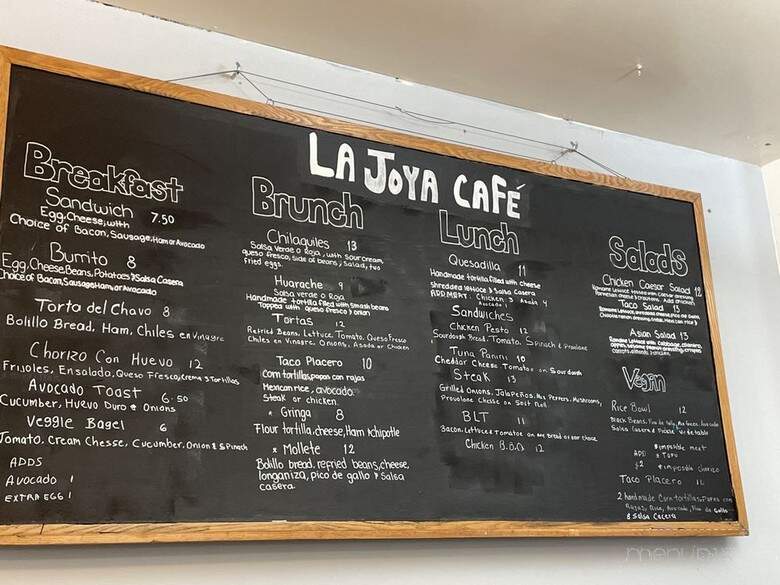 LA JOYA CAFÉ
Breakfast
Sandwich 7.50
Egg, Cheese, with
Choice of Bacon, Sausage, Ham or Avocado
Burrito 8
Egg, Cheese, Beans, Potatoes & Salsa Casera
Choice of Bacon, Sausage Ham or Avocado
Torta del Chavo 8
Bolillo Bread, Ham, Chiles en Vinagre
Chorizo Con Huevo 12
Frijoles, Ensalada, Queso Fresco, Crema & Tortillas
Avocado Toast 6.50
Cucumber, Huevo Duro & Onions
Veggie Bagel 6
Tomato, Cream Chesse, Cucumber, Onion & Spinach
ADDS
Avocado 1
EXTRA EGG 1
Brunch
Chilaquiles 13
Salsa Verde o Roja, with sour cream,
queso fresco, side of beans, Salad, two
fried eggs.
Huarache 9
Salsa verde o Roja
Handmade tortilla filled with smash beans
Topped with queso fresco & onion
Tortas 12
Refried Beans, Lettuce, Tomato, Queso Fresco
Chiles en Vinagre, Onions, Asada or Chicken
Taco Placero 10
Corn tortillas, papas con rajas
Mexican rice, avocado
Steak or chicken
* Gringa 8
Flour tortilla, cheese, Ham & chipotle
* Mollete 12
Bolillo bread, refried beans, cheese,
longaniza, pico de gallo & Salsa
casera
Lunch
Quesadilla 11
Handmade tortilla filled with cheese
Shredded lettuce & Salsa Casera
ADD MEAT: Chicken 3 Asada 4
Avocado 1
Sandwiches
Chicken Pesto 12
Sourdough Bread, Tomato, Spinach & Provolone
Tuna Panini 10
Cheddar Cheese Tomatoe on Sourdough
Steak 13
Grilled Onions, Jalapeños, Mix Peppers, Mushrooms,
Provolone Chesse on Soft Roll
BLT 11
Bacon, Lettuce & Tomatoe on any Bread of your choice
Chicken B.B.Q 12
Salads
Chicken Caesar Salad 12
Romaine Lettuce tossed with Caesar dressing,
Parmesan cheese & croutons. Add chicken
Taco Salad 13
Romaine Lettuce,
Asian Salad 13
Romaine Lettuce with cabbage, cilantro,
carrots, almonds, chicken
Vegan
Rice Bowl 12
Black Beans, Pico de Gallo, Avocado
Salsa Casera & vegetable
ADD
$2
* impossible meat
* Tofu
* impossible chorizo
Taco Placero 12
2 handmade Corn tortillas, Papas con
Rajas, Rice, Avocado, Pico de Gallo
& Salsa Casera
menupix